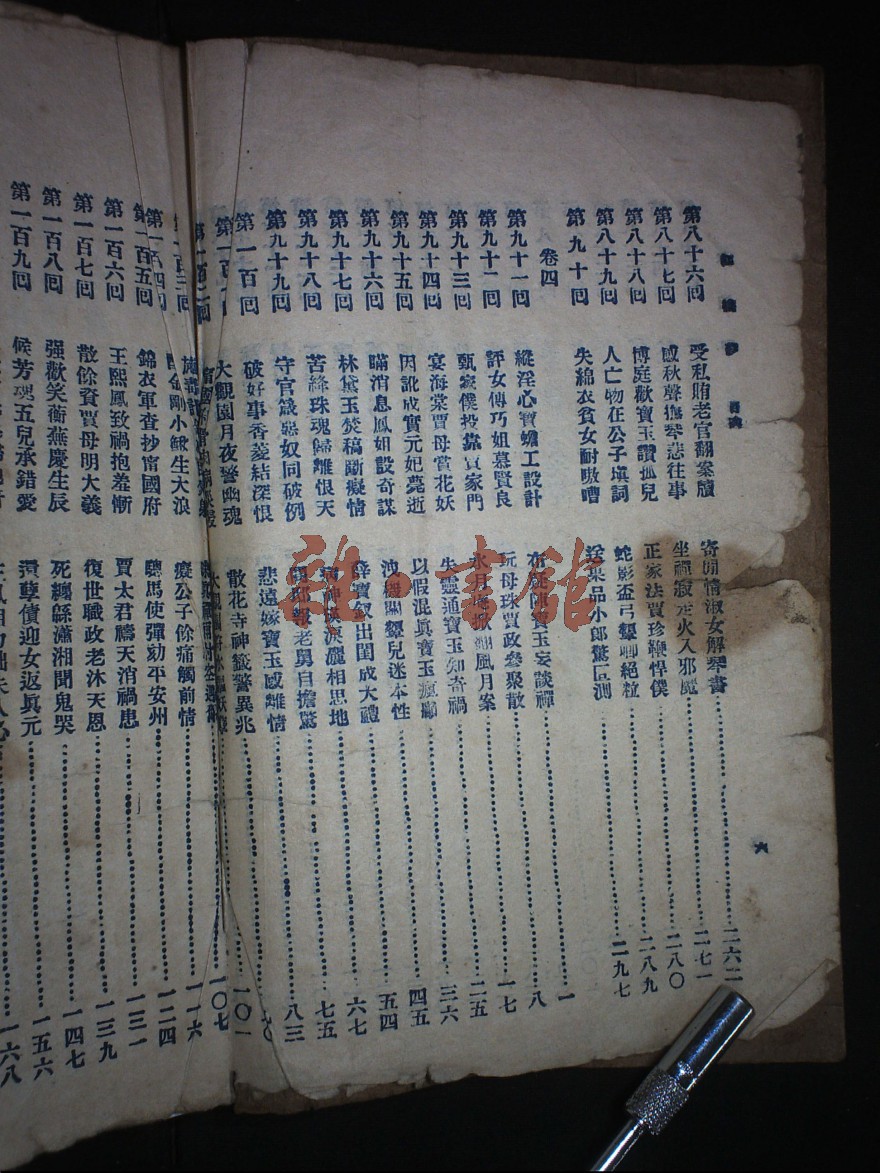 紅樓夢 目次 六
第八十六回 受私賄老官翻案牘 寄閒情淑女解琴書 二六二
第八十七回 感秋聲撫琴悲往事 坐禪寂走火入邪魔 二七一
第八十八回 博庭歡寶玉讚孤兒 正家法賈珍鞭悍僕 二八〇
第八十九回 人亡物在公子塡詞 蛇影盃弓顰卿絕粒 二八九
第九十回 失綿衣貧女耐嗷嘈 送菓品小郞驚叵測 二九七
卷四
第九十一回 縱淫心寶蟾工設計 布疑陣寶玉妄談禪 一
第九十二回 評女傳巧姐慕賢良 玩母珠賈政參聚散 八
第九十三回 甄家僕投靠賈家門 水月庵掀翻風月案 一七
第九十四回 宴海棠賈母賞花妖 失靈通寶玉知奇禍 二五
第九十五回 因訛成實元妃薨逝 以假混眞寶玉瘋顚 三六
第九十六回 瞞消息鳳姐設奇謀 洩機關顰兒迷本性 四五
第九十七回 林黛玉焚稿斷癡情 薛寶釵出閨成大禮 五四
第九十八回 苦絳珠魂歸離恨天 病神瑛淚灑相思地 六七
第九十九回 守官箴惡奴同破例 閱邸報老舅自擔驚 七五
第一百回 破好事香菱結深恨 悲遠嫁寶玉感離情 八三
第一百一回 大觀園月夜警幽魂 散花寺神籤警異兆
第一百二回 大觀園 一〇一
第一百三回 施毒計 一〇七
第一百四回 金剛小鰍生大浪 癡公子餘痛觸前情 一一六
第一百五回 錦衣軍查抄甯國府 驄馬使彈劾平安州 一二四
第一百六回 王熙鳳致禍抱羞慚 賈太君禱天消禍患 一三一
第一百七回 散餘資賈母明大義 復世職政老沐天恩 一三九
第一百八回 强歡笑蘅蕪慶生辰 死纏緜瀟湘聞鬼哭 一四七
第一百九回 候芳魂五兒承錯愛 還孽債迎女返眞元 一五六
一六八
雜·書館